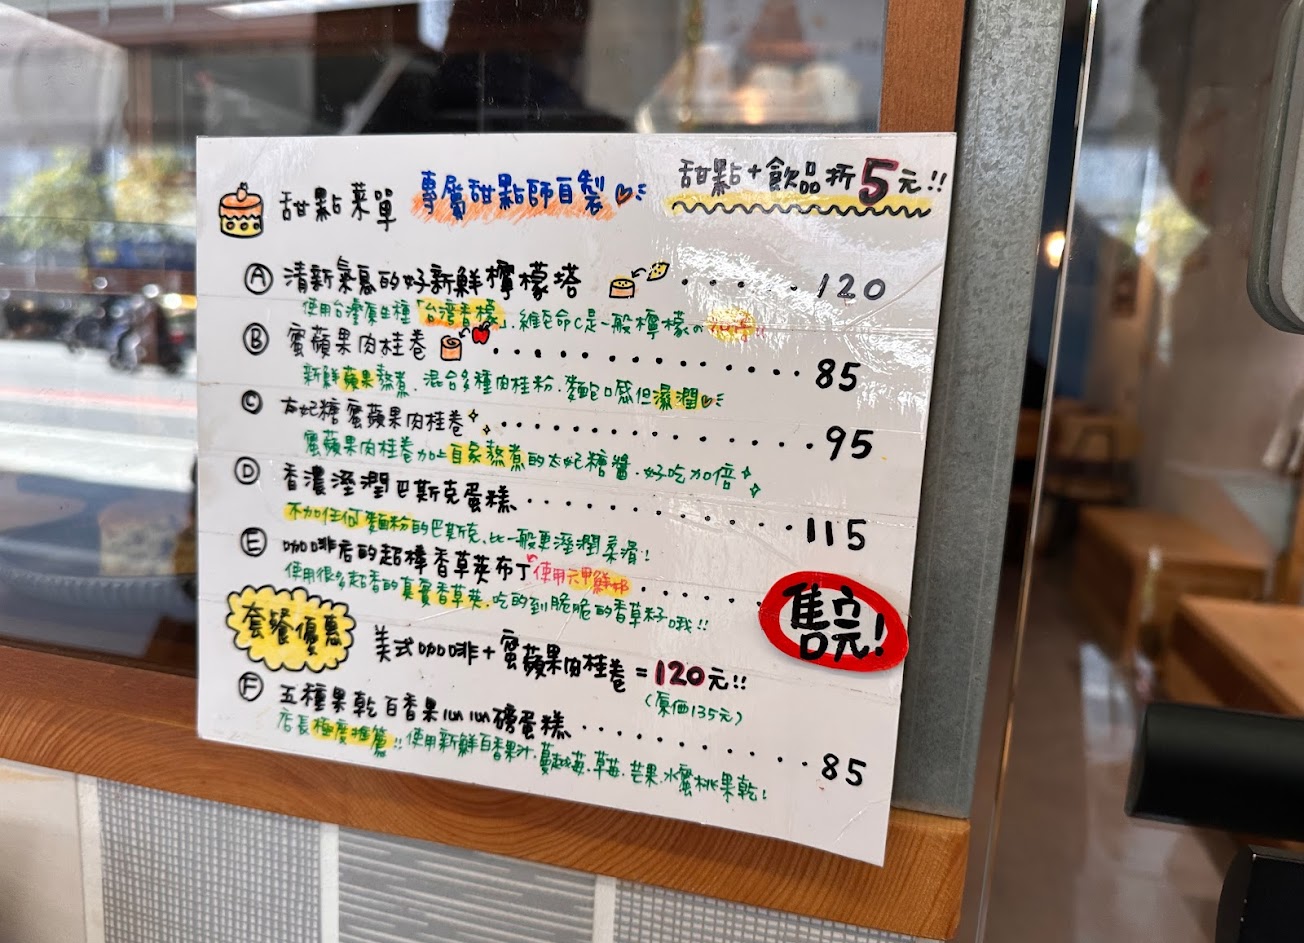 甜點菜單 專屬甜點師自製
甜點+飲品折5元!!
Ⓐ 清新氣息的好新鮮檸檬塔 ..... 120
使用台灣原生種「台灣香檸」, 維他命C是一般檸檬の
Ⓑ 蜜蘋果肉桂卷 ............. 85
新鮮蘋果熬煮、混合多種肉桂粉、麵包口感但濕潤
Ⓒ 太妃糖蜜蘋果肉桂卷 ............. 95
蜜蘋果肉桂卷加上自家熬煮的太妃糖醬、好吃加倍
Ⓓ 香濃溼潤巴斯克蛋糕 ............. 115
不加任何麵粉的巴斯克、比一般更溼潤柔滑!
Ⓔ 咖啡店的超棒香草莢布丁 使用六甲鮮奶 ..... 售完!
使用很多超香的真實香草莢, 吃的到脆脆的香草籽哦!!
套餐優惠 美式咖啡+蜜蘋果肉桂卷=120元!!
(原価135元)
Ⓕ 五種果乾百香果磅蛋糕 ........... 85
店長極度推薦!! 使用新鮮百香果汁、蔓越莓、草莓、芒果、水蜜桃果乾!